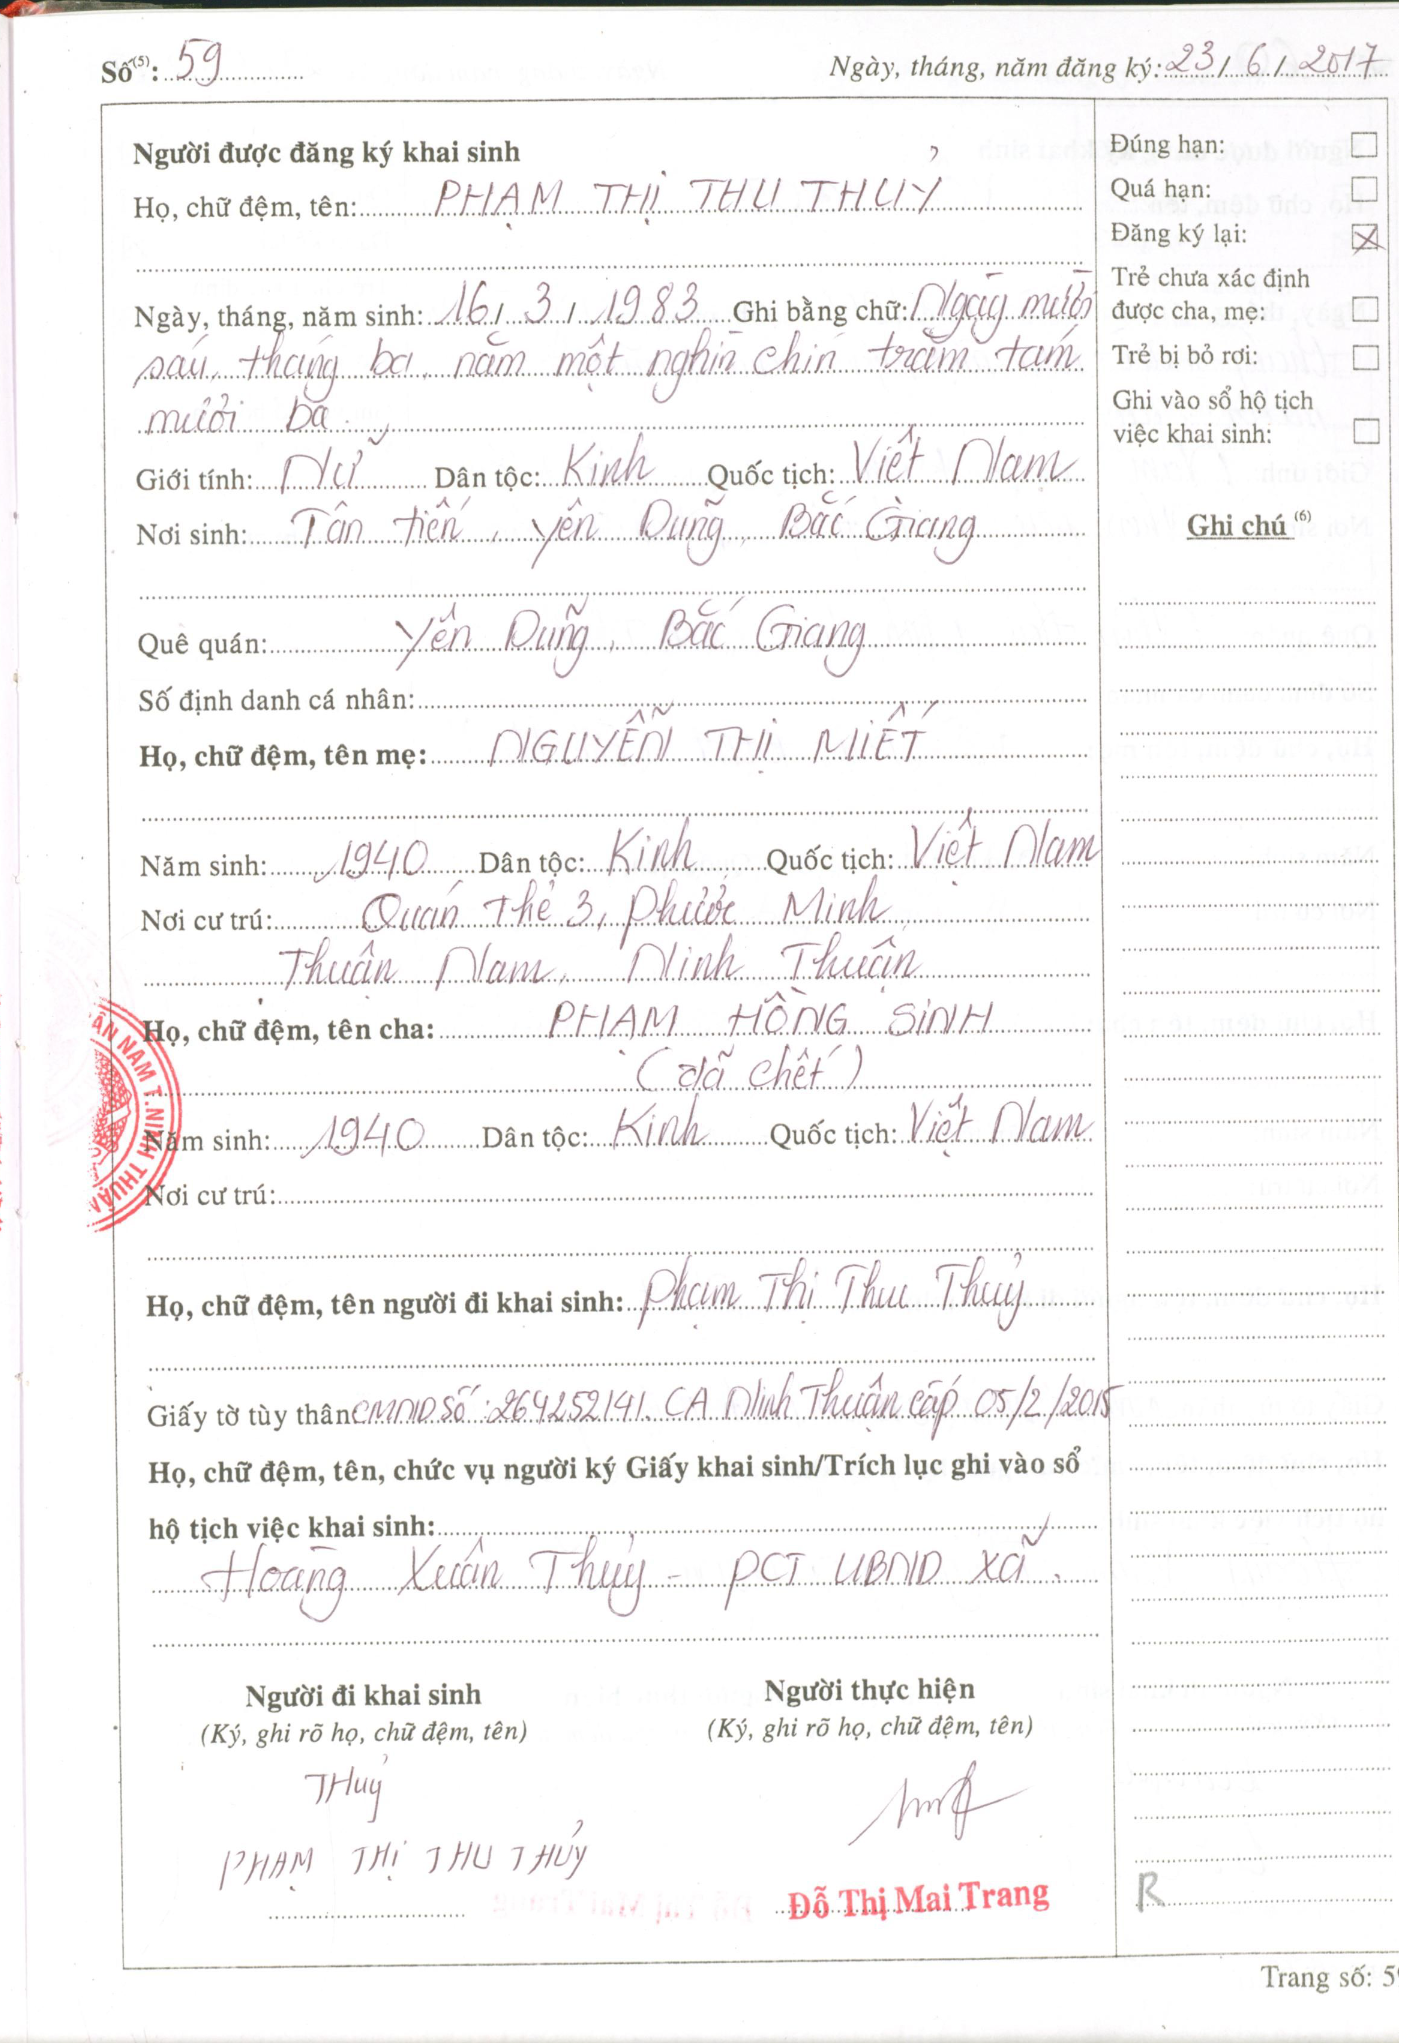 Số⁽⁵⁾: 59
Ngày, tháng, năm đăng ký: 23 / 6 / 2017
Người được đăng ký khai sinh
Họ, chữ đệm, tên: PHẠM THỊ THU THỦY
Ngày, tháng, năm sinh: 16 / 3 / 1983 Ghi bằng chữ: Ngày mười
sáu, tháng ba, năm một nghìn chín trăm tám
mươi ba.
Giới tính: Nữ Dân tộc: Kinh Quốc tịch: Việt Nam
Nơi sinh: Tân tiến, Yên Dũng, Bắc Giang
Quê quán: Yên Dũng, Bắc Giang
Số định danh cá nhân:
Họ, chữ đệm, tên mẹ: NGUYỄN THỊ MIẾT
Năm sinh: 1940 Dân tộc: Kinh Quốc tịch: Việt Nam
Nơi cư trú: Quán Thẻ 3, Phước Minh,
Thuận Nam, Ninh Thuận
Họ, chữ đệm, tên cha: PHẠM HỒNG SINH
(đã chết)
Năm sinh: 1940 Dân tộc: Kinh Quốc tịch: Việt Nam
Nơi cư trú:
Họ, chữ đệm, tên người đi khai sinh: Phạm Thị Thu Thuỷ
Giấy tờ tùy thân CMND Số: 264252141. CA Ninh Thuận cấp 05/2/2015
Họ, chữ đệm, tên, chức vụ người ký Giấy khai sinh/Trích lục ghi vào sổ
hộ tịch việc khai sinh:
Hoàng Xuân Thủy - PCT UBND xã.
Người đi khai sinh
(Ký, ghi rõ họ, chữ đệm, tên)
THuỷ
PHẠM THỊ THU THỦY
Người thực hiện
(Ký, ghi rõ họ, chữ đệm, tên)
Đỗ Thị Mai Trang
Đúng hạn:
Quá hạn:
Đăng ký lại: X
Trẻ chưa xác định
được cha, mẹ:
Trẻ bị bỏ rơi:
Ghi vào sổ hộ tịch
việc khai sinh:
Ghi chú ⁽⁶⁾
R
NAM T.NINH THUẬN
Trang số: 59